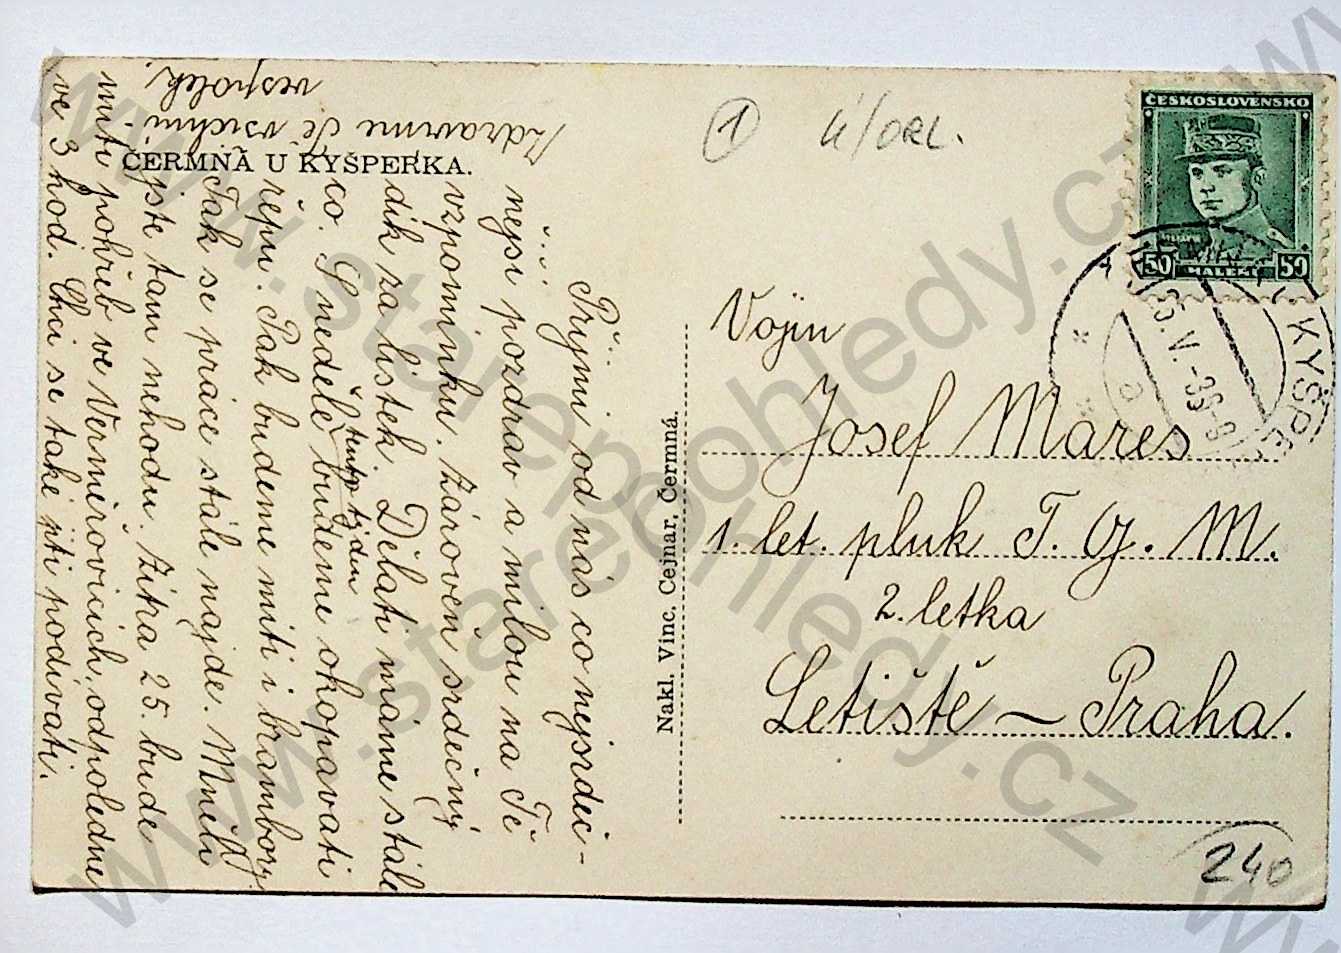 ČERMNÁ U KYŠPERKA.
Přijmi od nás co nejsrdeč-
nější pozdrav a milou na Tě
vzpomínku. Zároveň srdečný
dík za lístek. Dělati máme stále
co. S neděle budeme okopavati
tento týden
řepu. Pak budeme míti i brambory
Tak se práce stále najde. Měli
jste tam nehodu. Zítra 25. bude
míti pohřeb ve Verměřovicích odpoledne
ve 3 hod. Chci se také jíti podívati.
Zdravíme Tě všichni
vespolek.
Nakl. Vinc. Cejnar, Čermná.
1
Ú/ORL.
ČESKOSLOVENSKO
50 HALÉŘŮ 50
KYŠPE
25.V.-36-9
Vojín
Josef Mareš
1. let. pluk T. G. M.
2. letka
Letiště – Praha.
240
www.starepohledy.cz
www.starepohledy.cz